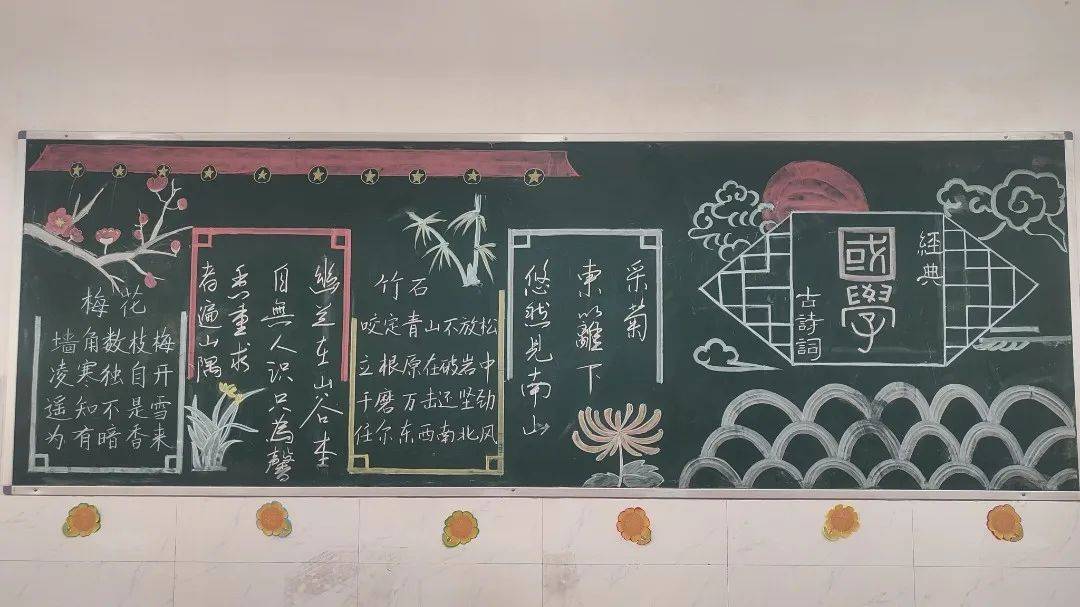 梅花
墙角数枝梅
凌寒独自开
遥知不是雪
为有暗香来
幽兰在山谷本
自無人识只為馨
香重求
者遍山隅
竹石
咬定青山不放松
立根原在破岩中
千磨万击还坚劲
任尔东西南北风
采菊
東籬下
悠然見南山
經典
國學
古詩詞